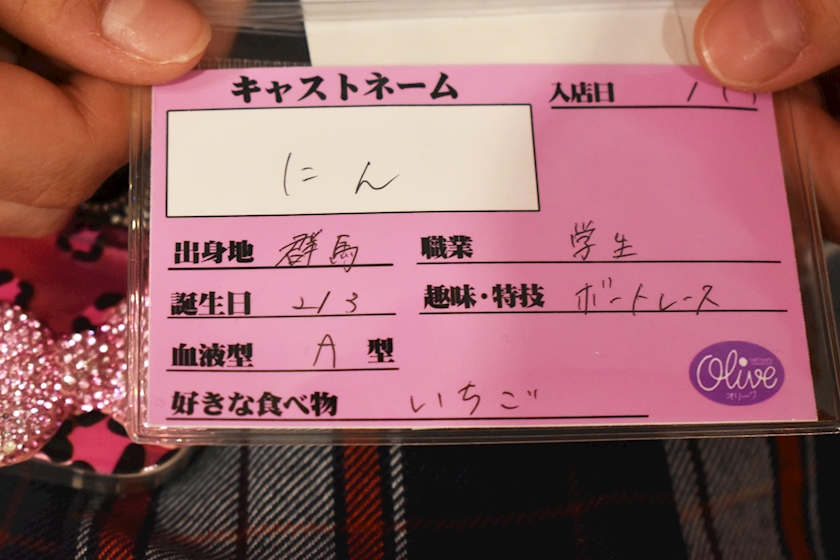 キャストネーム
入店日
にん
出身地 群馬
職業 学生
誕生日 2/3
趣味・特技 ボートレース
血液型 A 型
Olive
オリーブ
好きな食べ物 いちご